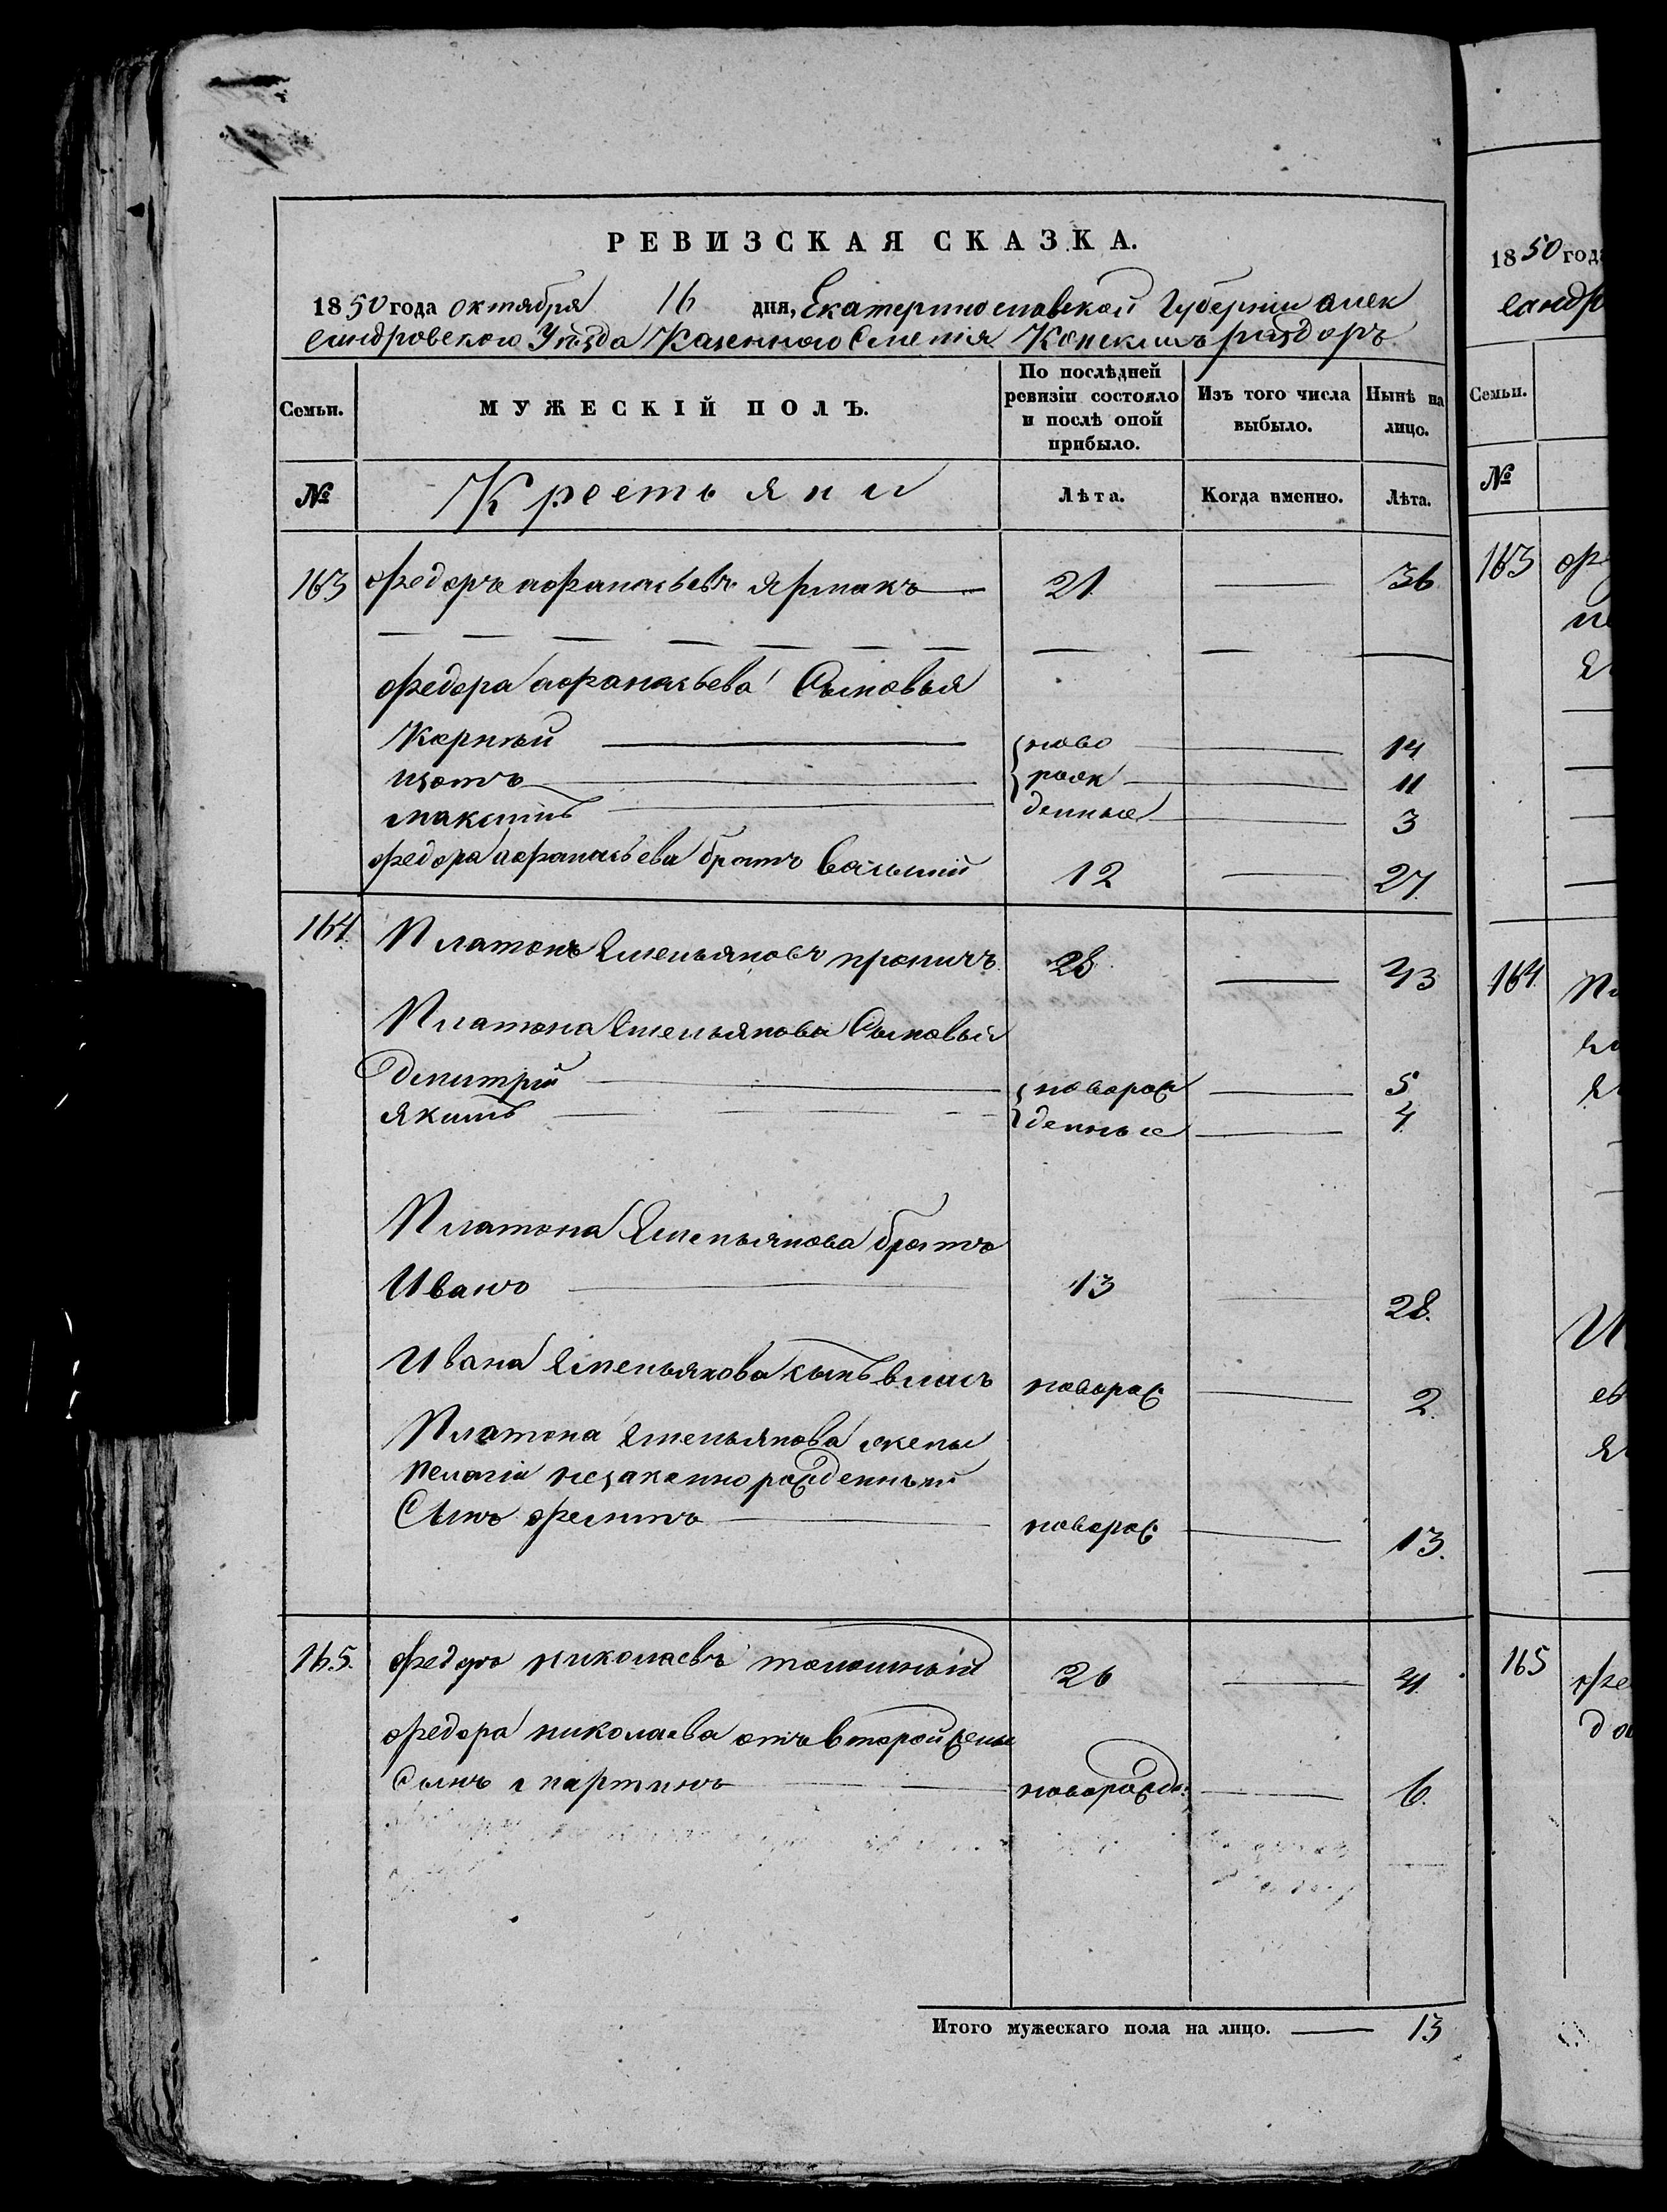 РЕВИЗСКАЯ СКАЗКА.
1850 года октября 16 дня, Екатеринославской Губерніи алек
сандровского Уѣзда Казенного Селенія Конскихъ раздоръ
Семьи.
МУЖЕСКІЙ ПОЛЪ.
По послѣдней ревизіи состояло и послѣ оной прибыло.
Изъ того числа выбыло.
Нынѣ на лицо.
№ Крестьяни Лѣта. Когда именно. Лѣта.
163 федоръ афанасьевъ Ярмакъ 21 — 36
федора афанасьева Сыновья
Карнѣй { ново — 14
изотъ { рож — 11
максимъ денные — 3
федора афанасьева братъ василий 12 — 27
164 Платонъ Емельяновъ проничъ 28 — 43
Платона Емельянова Сыновья
Дмитрій { поворож — 5
якимъ { денные — 4
Платона Емельянова братъ
Иванъ 13 — 28.
Ивана Емельянова сынъ власъ новорож — 2.
Платона Емельянова жены
пелагіи незаконно рожденный
Сынъ филипъ новорож — 13.
165. федоръ николаевъ 26 — 41
федора николаева отъ второй жены
Сынъ мартинъ новорожде: — 6.
Итого мужескаго пола на лицо. — 13
1850 года
сандр
Семьи.
№
163
164
165